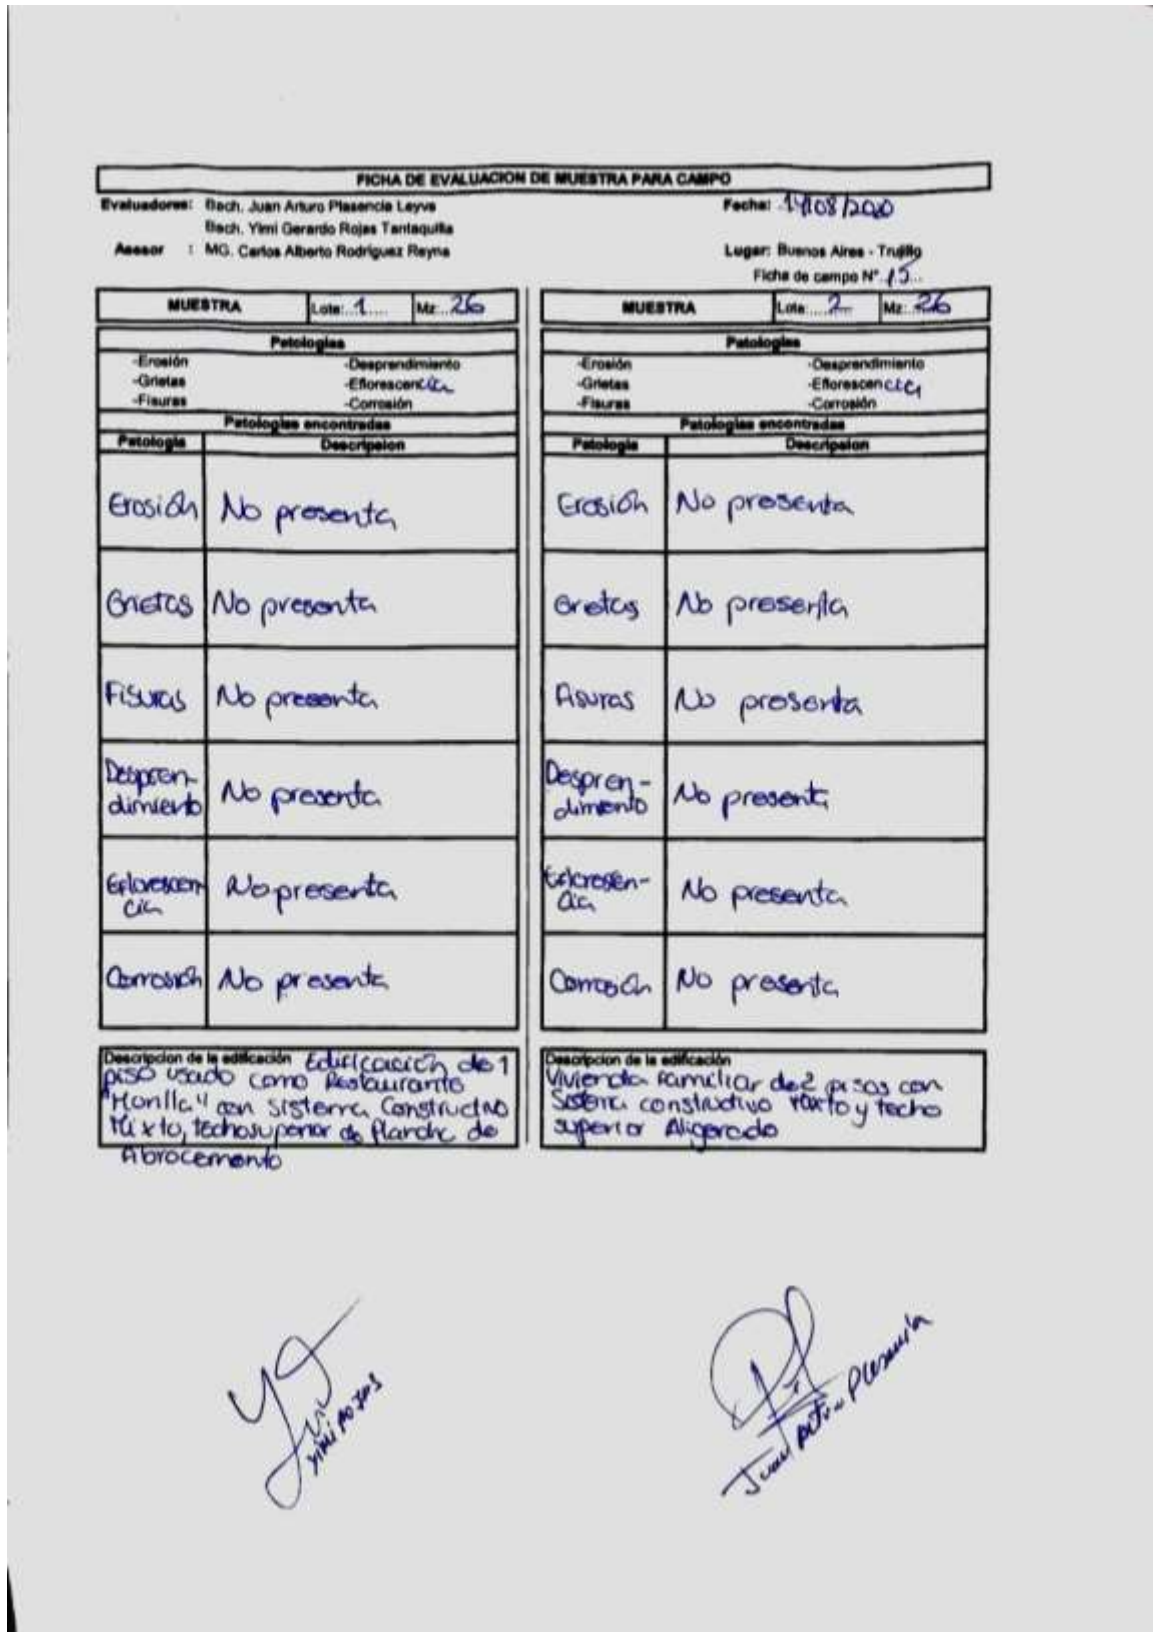 FICHA DE EVALUACION DE MUESTRA PARA CAMPO
Evaluadores: Bach. Juan Arturo Plasencia Leyva
Fecha: 14/08/2020
Bach. Yimi Gerardo Rojas Tantaquilla
Asesor : MG. Carlos Alberto Rodríguez Reyna
Lugar: Buenos Aires - Trujillo
Ficha de campo N° 15
MUESTRA Lote: 1 Mz: 26
Patologias
-Erosión -Desprendimiento
-Grietas -Eflorescencia
-Fisuras -Corrosión
Patologias encontradas
Patologia Descripcion
Erosión No presenta
Grietas No presenta
Fisuras No presenta
Despren-
dimiento No presenta
Eflorescen
cia No presenta
Corrosión No presenta
Descripcion de la edificación Edificación de 1
piso usado como Restaurante
con Sistema Constructivo
Mixto, techo superior de Plancha de
Abrocemento
MUESTRA Lote: 2 Mz: 26
Patologias
-Erosión -Desprendimiento
-Grietas -Eflorescencia
-Fisuras -Corrosión
Patologias encontradas
Patologia Descripcion
Erosión No presenta
Grietas No presenta
Fisuras No presenta
Despren-
dimiento No presenta
Eflorescen-
cia No presenta
Corrosión No presenta
Descripcion de la edificación
Vivienda Familiar de 2 pisos con
Sistema constructivo Mixto y techo
superior Aligerado
Yimi Rojas
Juan Arturo Plasencia